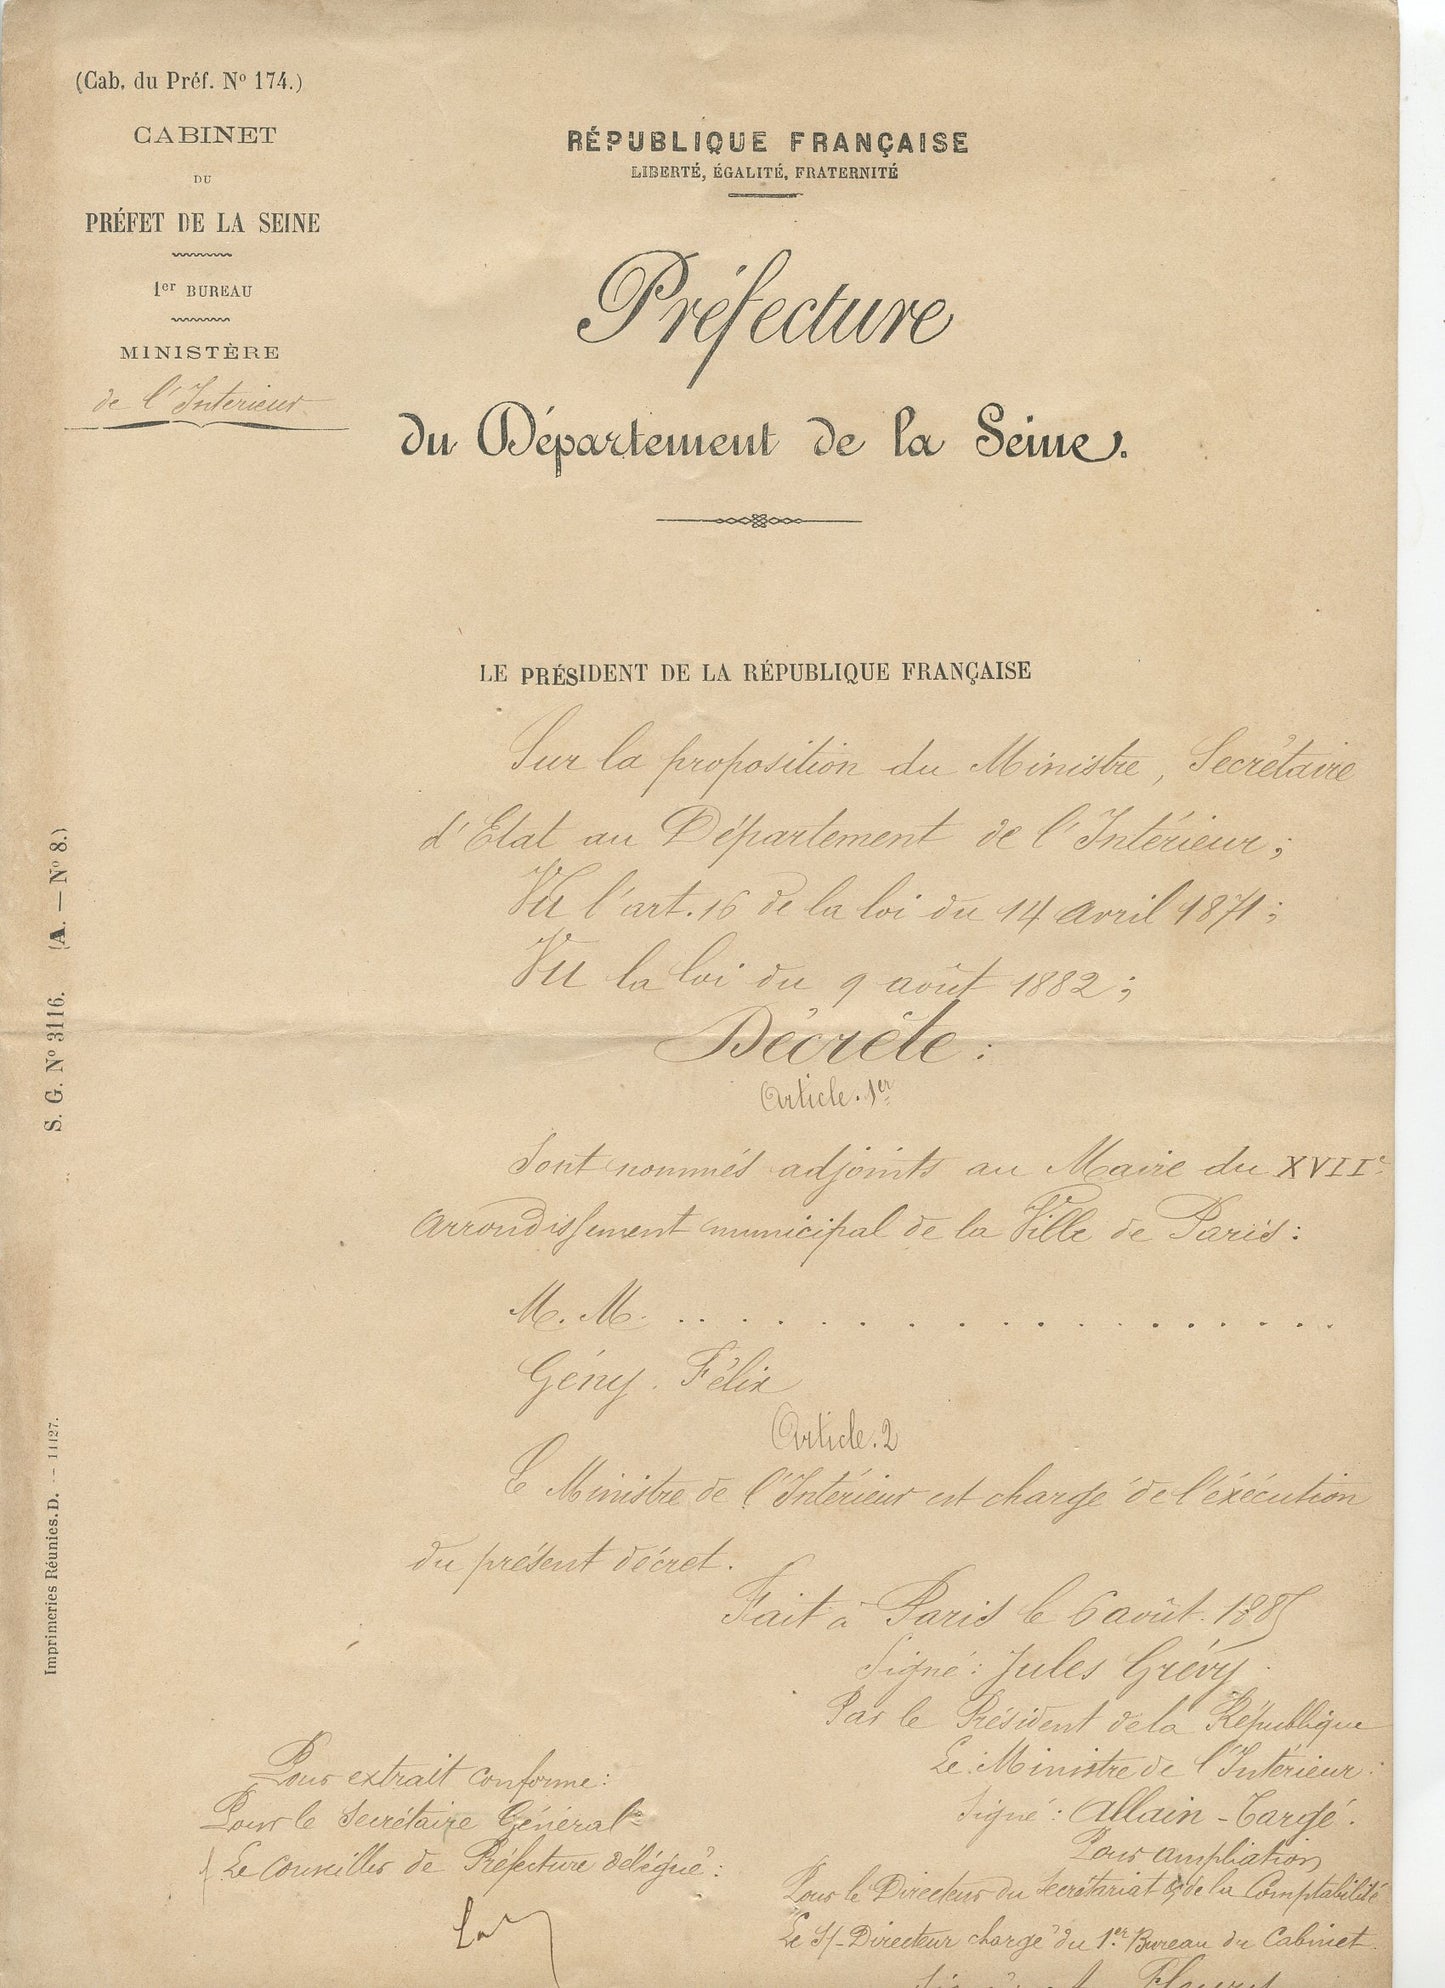 (Cab. du Préf. Nº 174.)
CABINET
DU
PRÉFET DE LA SEINE
1er BUREAU
MINISTÈRE
de l'Interieur
RÉPUBLIQUE FRANÇAISE
LIBERTÉ, ÉGALITÉ, FRATERNITÉ
Préfecture
du Département de la Seine.
LE PRÉSIDENT DE LA RÉPUBLIQUE FRANÇAISE
Sur la proposition du Ministre, Secrétaire
d'Etat au Département de l'Intérieur;
Vu l'art. 16 de la loi du 14 avril 1871;
Vu la loi du 9 août 1882;
Décrète:
Article. 1er
Sont nommés adjoints au Maire du XVIIe
arrondissement municipal de la Ville de Paris:
M. M. . . . . . . . . . . . . . . . . . .
Gény. Félix
Article. 2
Le Ministre de l'Intérieur est chargé de l'éxécution
du présent décret.
Fait à Paris le 6 août. 1885
Signé: Jules Grévy.
Par le Président de la République
Le Ministre de l'Intérieur:
Signé: Allain-Targé.
Pour ampliation
Pour le Directeur du Secrétariat & de la Comptabilité
Le S/-Directeur chargé du 1er Bureau du Cabinet
Signé: A. Fleury
Pour extrait conforme:
Pour le Secrétaire Général
Le Conseiller de Préfecture délégué:
S. G. Nº 3116. (A. — Nº 8.)
Imprimeries Réunies. D. — 11127.